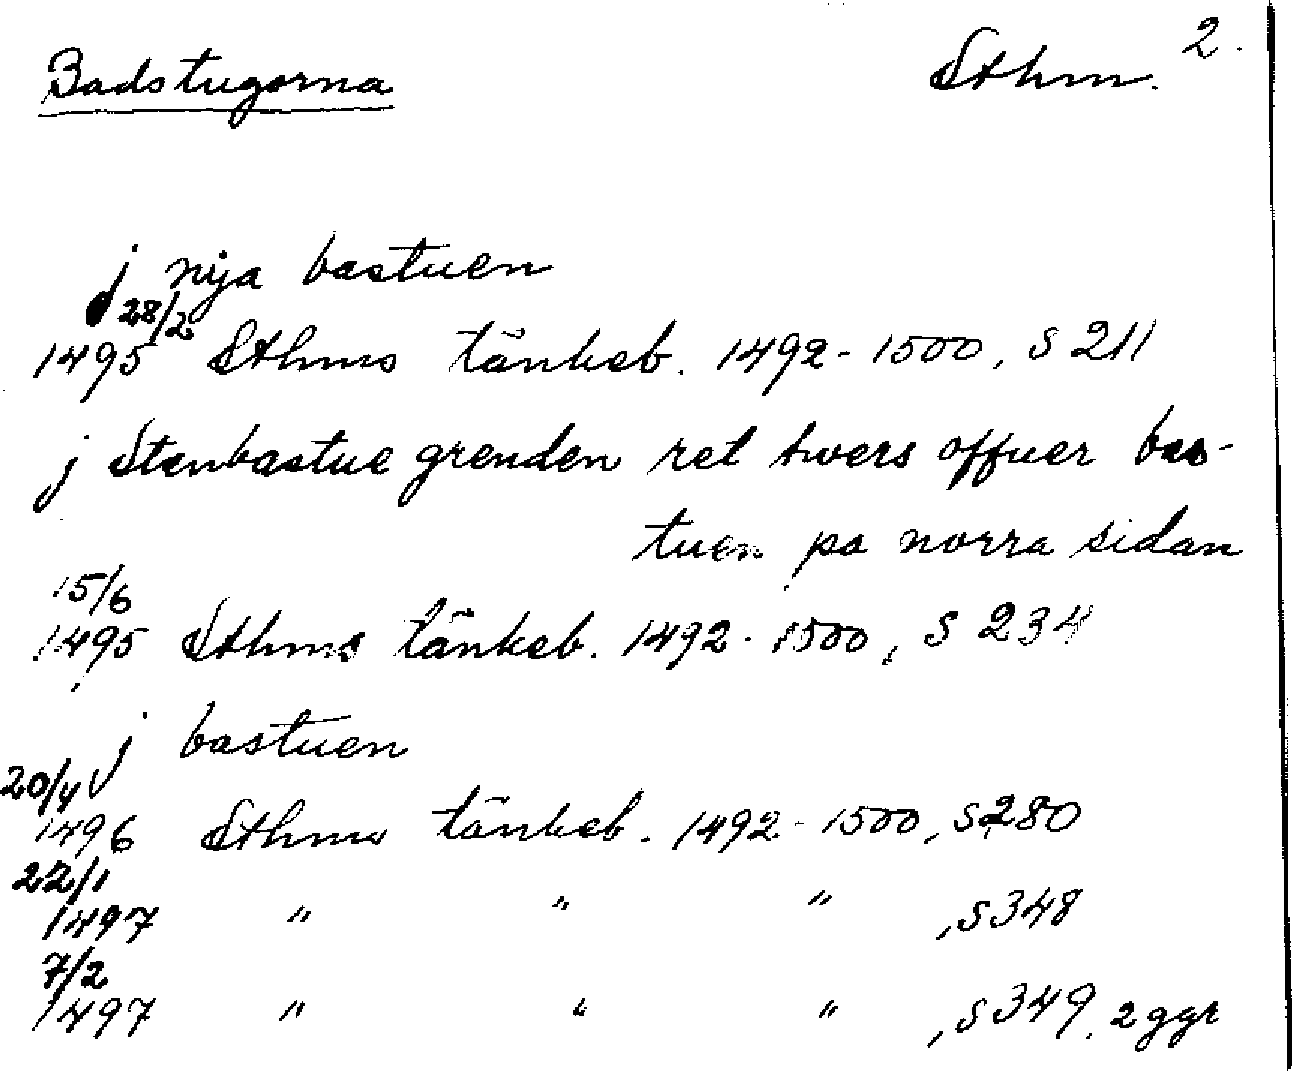 Badstugorna Sthm. 2.
j nÿa bastuen
28/2
1495 Sthms tänkeb. 1492-1500, s 211
j Stenbastue grenden ret twers offuer bas-
tuen pa norra sidan
15/6
1495 Sthms tänkeb. 1492-1500, s 234
j bastuen
20/4
1496 Sthms tänkeb. 1492-1500, s 280
22/1
1497 " " " , s 348
7/2
1497 " " " , s 349, 2 ggr